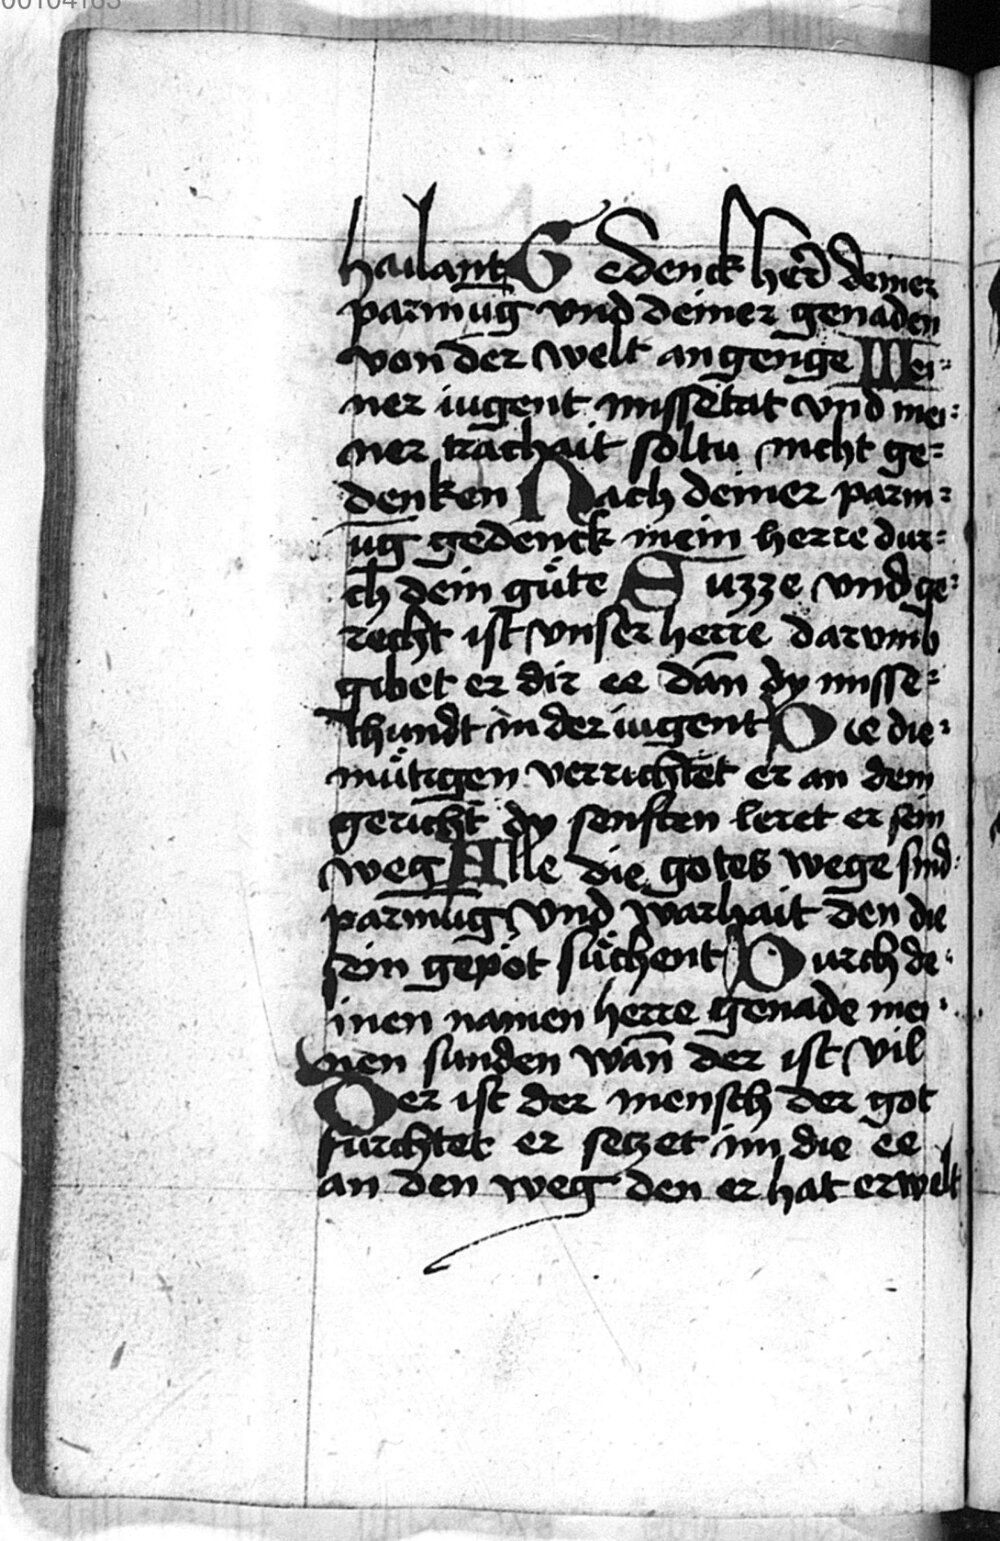 00104163
hailant Gedenck herr deiner
parmūg vnd deiner genaden
von der welt angenge Mei-
ner iugent missetat vnd mei-
ner trachait soltu nicht ge-
denken Nach deiner parm-
ūg gedenck mein herre dur-
ch dein guͤte Suzze vnd ge-
recht ist vnser herre darvmb
gibet er dir ee dān dy misse-
thundt in der iugent Die die-
muͤtigen verrichtet er an dem
gericht dy senften leret er sein
weg Alle die gotes wege sind
parmūg vnd warhait den die
sein gepot suͤchent Durch de-
inen namen herre genade mei-
nen sunden wān der ist vil
Der ist der mensch der got
furchtet er setzet im die ee
an den weg den er hat erwelt